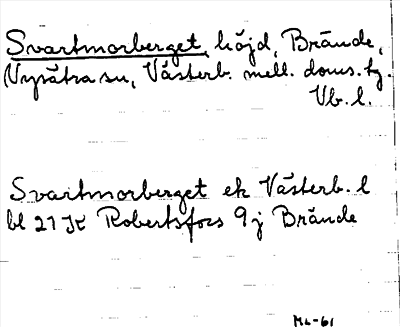 Svartmorberget, höjd, Brände,
Nysätra sn, Västerb. mell. doms.tg.
Vb. l.
Svartmorberget ek Västerb. l
bl 21 K Robertsfors 9 j Brände
ML-61